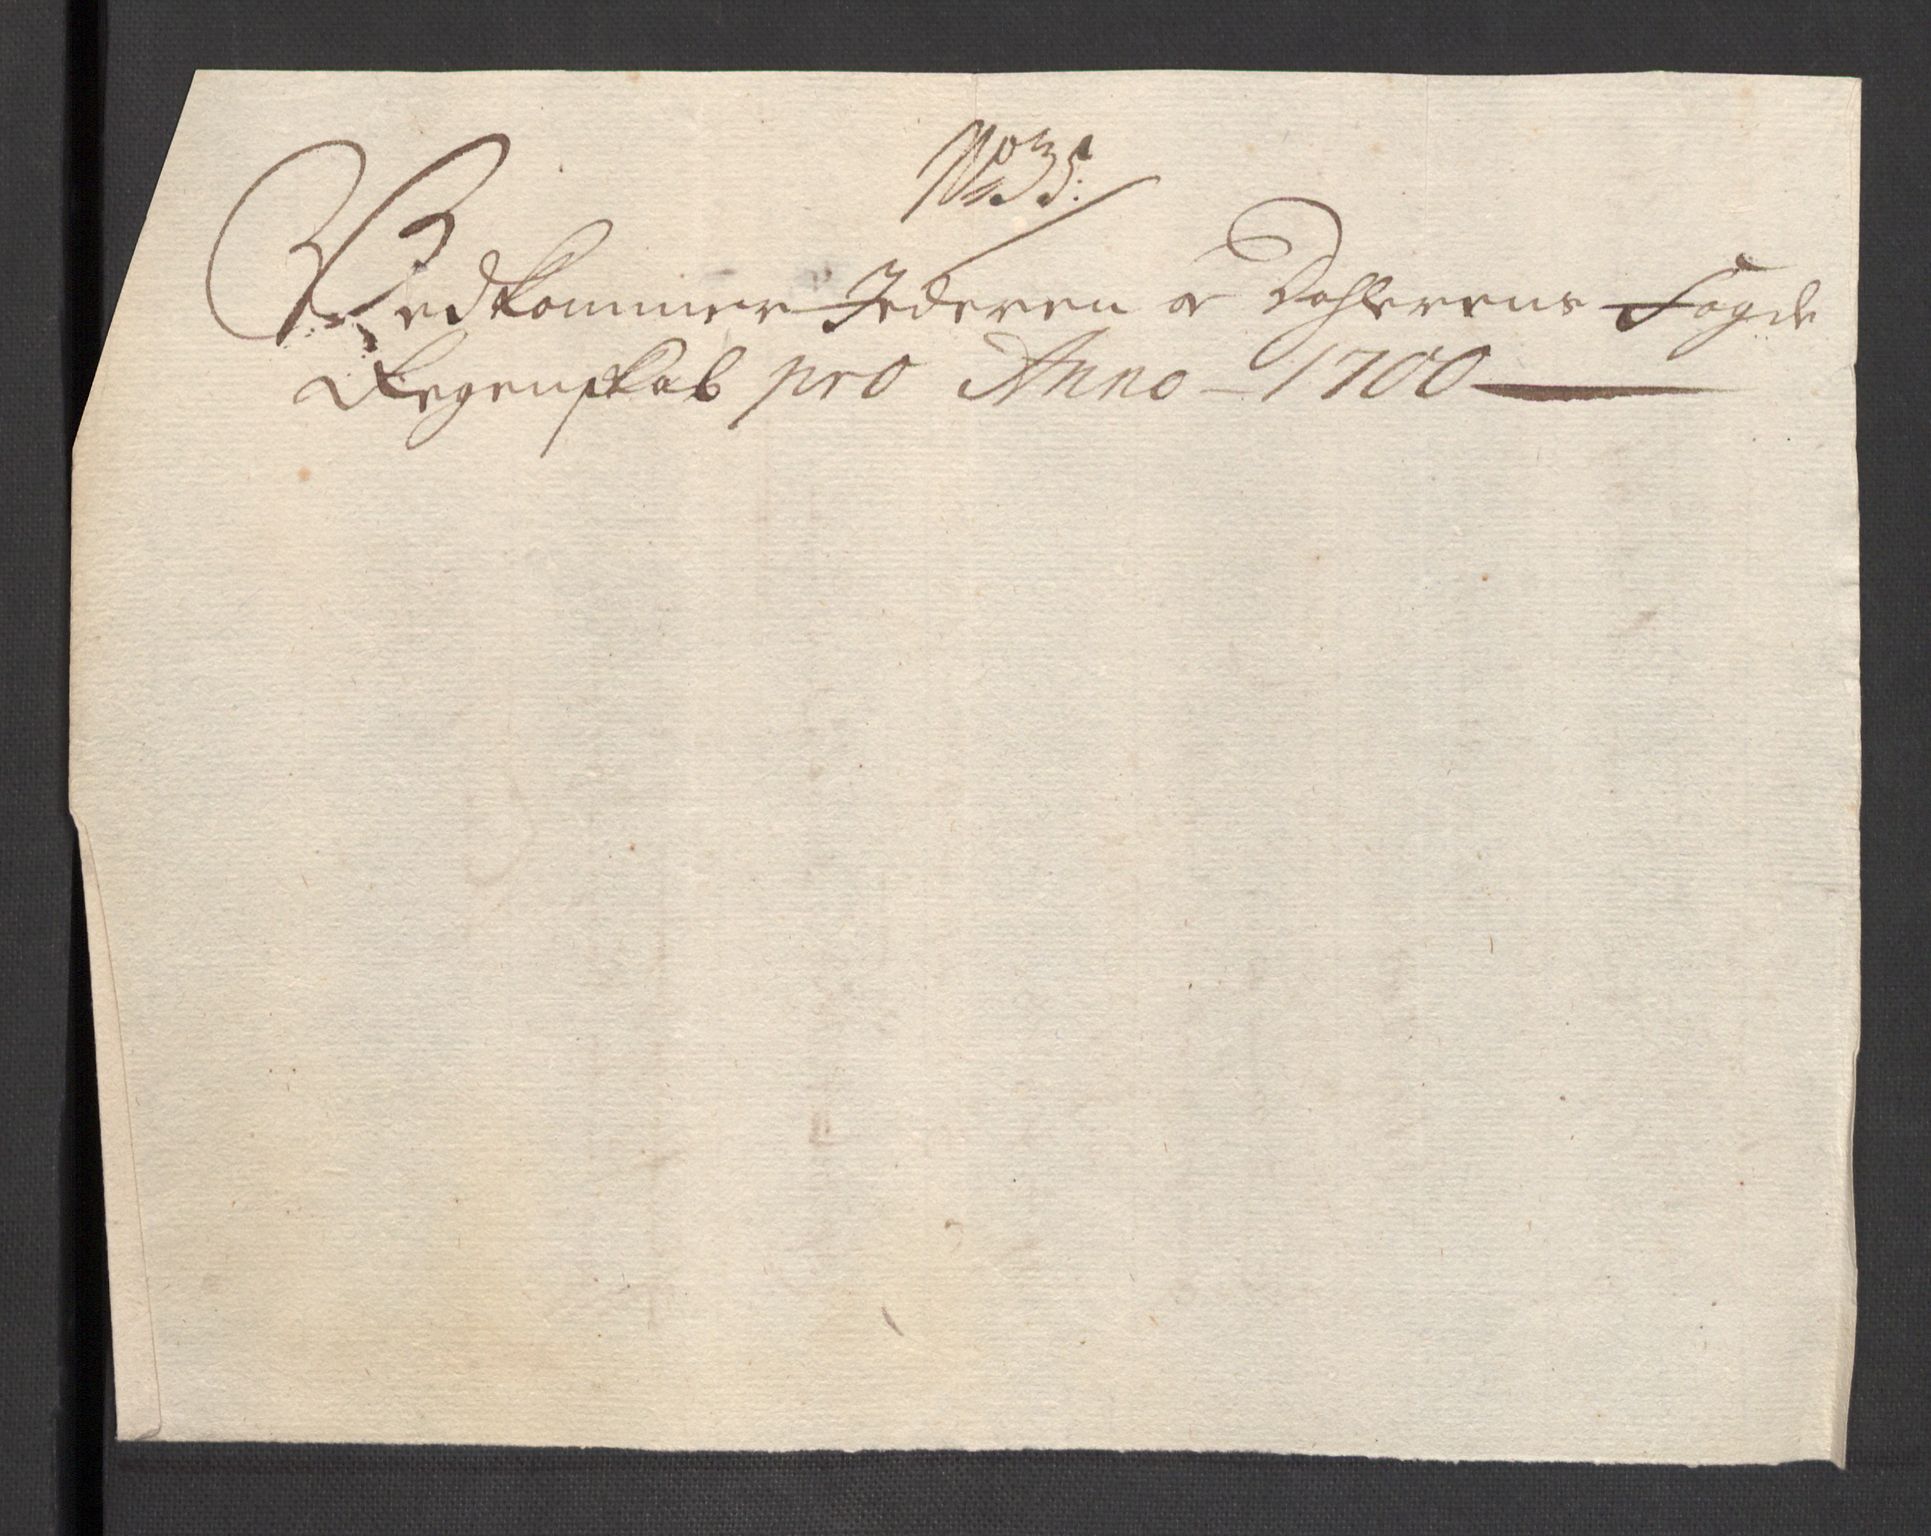 No 35:
Vedkommer Jederen & Dahlerens Fogde
Regenskab pro Anno 1700